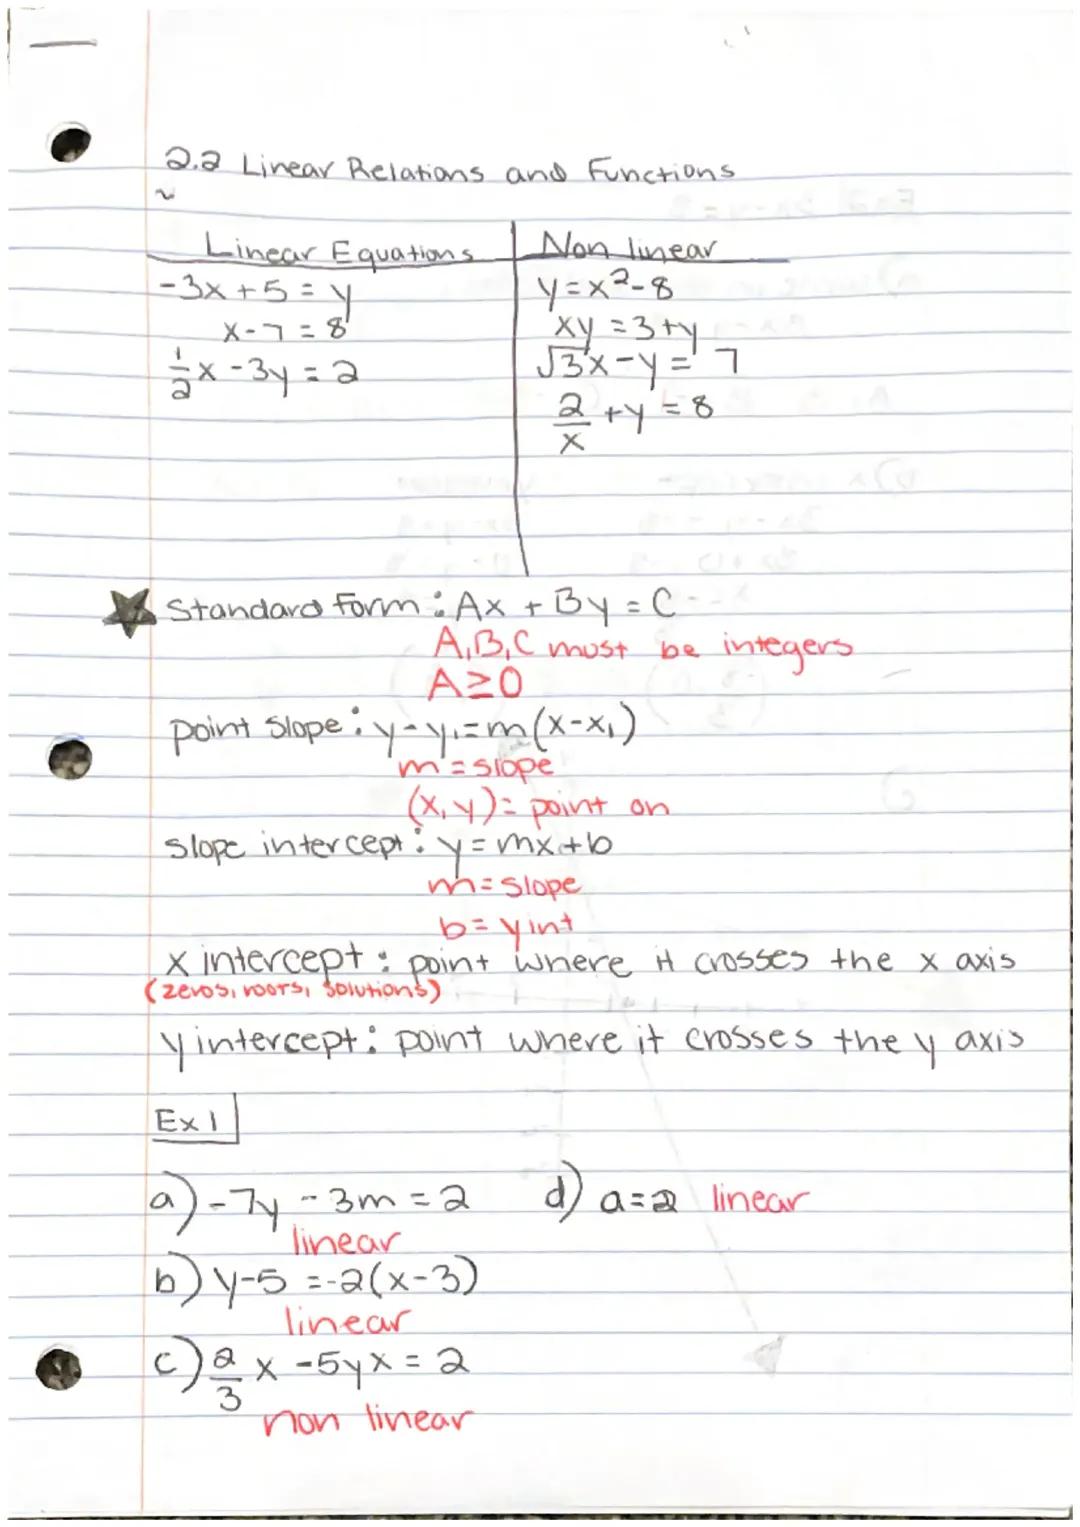 2.2 Linear Relations and Functions
Linear Equations
-3x + 5 = y
x - 7 = 8
1/2 x - 3y = 2
Non linear
y = x² - 8
xy = 3 + y
√3x - y = 7
2/x + y = 8
Standard Form : Ax + By = C
A, B, C must be integers
A ≥ 0
point slope : y - y₁ = m(x - x₁)
m = slope
(x, y) = point on
slope intercept : y = mx + b
m = slope
b = y int
x intercept : point where it crosses the x axis
(zeros, roots, solutions)
y intercept : point where it crosses the y axis
Ex 1
a) -7y - 3m = 2
linear
b) y - 5 = -2(x - 3)
linear
c) 2/3 x - 5yx = 2
non linear
d) a = 2 linear